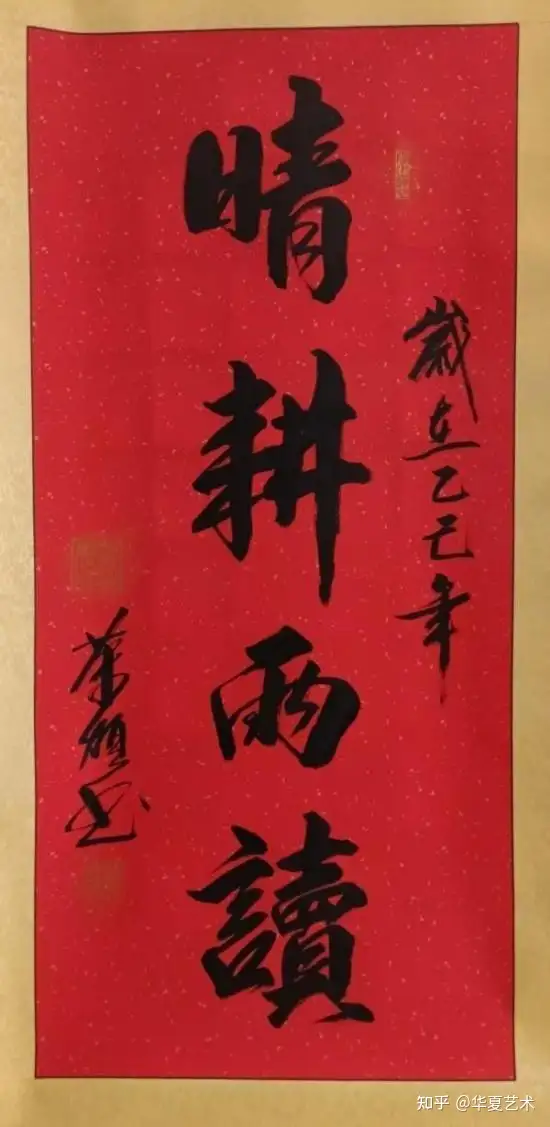 歲在乙巳年
晴耕雨讀
榮順書
知乎 @华夏艺术